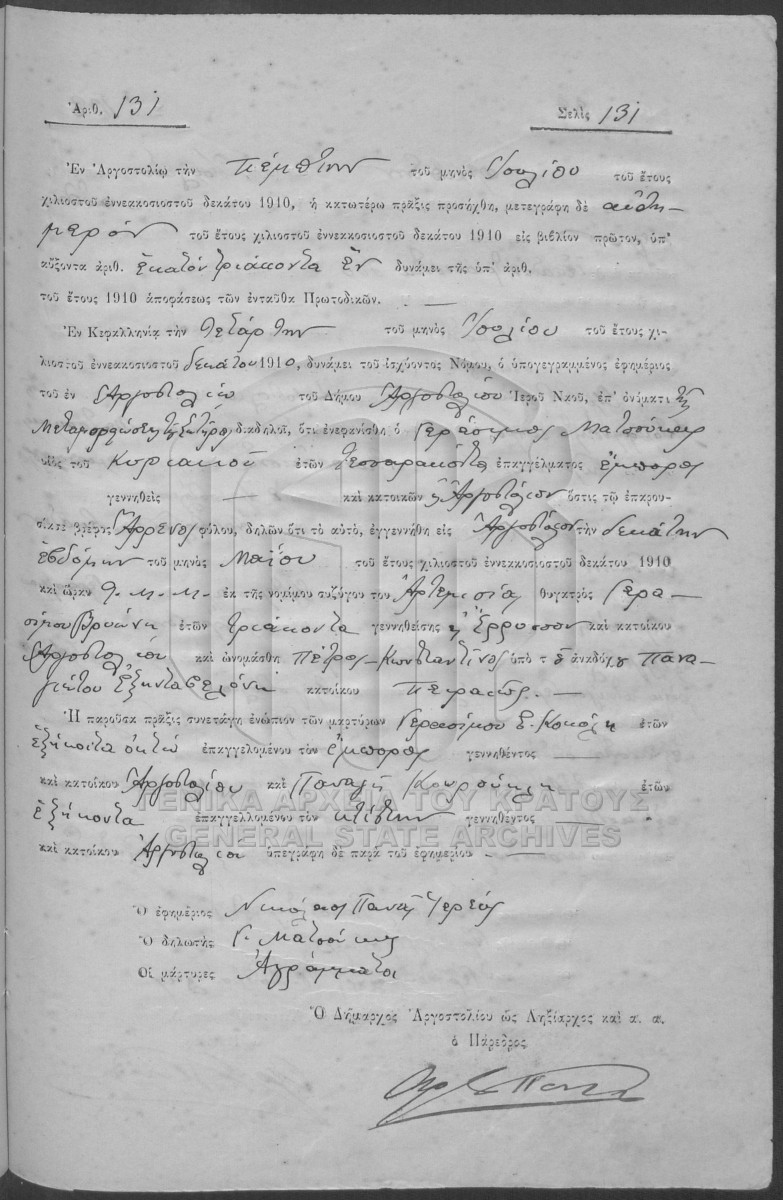 Ἀριθ. 131
Σελὶς 131
Ἐν Ἀργοστολίῳ τὴν πέμπτην τοῦ μηνὸς Ἰουλίου τοῦ ἔτους
χιλιοστοῦ ἐννεακοσιοστοῦ δεκάτου 1910, ἡ κατωτέρω πρᾶξις προσήχθη, μετεγράφη δὲ αὐθη-
μερὸν τοῦ ἔτους χιλιοστοῦ ἐννεακοσιοστοῦ δεκάτου 1910 εἰς βιβλίον πρῶτον, ὑπ'
αὔξοντα ἀριθ. ἑκατὸν τριάκοντα ἓν δυνάμει τῆς ὑπ' ἀριθ.
τοῦ ἔτους 1910 ἀποφάσεως τῶν ἐνταῦθα Πρωτοδικῶν. —
Ἐν Κεφαλληνίᾳ τὴν τετάρτην τοῦ μηνὸς Ἰουλίου τοῦ ἔτους χι-
λιοστοῦ ἐννεακοσιοστοῦ δεκάτου 1910, δυνάμει τοῦ ἰσχύοντος Νόμου, ὁ ὑπογεγραμμένος ἐφημέριος
τοῦ ἐν Ἀργοστολίῳ τοῦ Δήμου Ἀργοστολίου Ἱεροῦ Ναοῦ, ἐπ' ὀνόματι τῆς
Μεταμορφώσεως τοῦ Σωτῆρος διαδηλοῖ, ὅτι ἐνεφανίσθη ὁ Γεράσιμος Ματσούκης
υἱὸς τοῦ Κυριακοῦ ἐτῶν τεσσαράκοντα ἐπαγγέλματος ἔμπορος
γεννηθεὶς — καὶ κατοικῶν εἰς Ἀργοστόλιον ὅστις τῷ ἐπαρου-
σίασε βρέφος ἄρρενος φύλου, δηλῶν ὅτι τὸ αὐτὸ, ἐγγεννήθη εἰς Ἀργοστόλιον τὴν δεκάτην
ἑβδόμην τοῦ μηνὸς Μαΐου τοῦ ἔτους χιλιοστοῦ ἐννεακοσιοστοῦ δεκάτου 1910
καὶ ὥραν 9. μ. μ. ἐκ τῆς νομίμου συζύγου του Ἀρτεμισία θυγατρὸς Γερα-
σίμου Βρυώνη ἐτῶν τριάκοντα γεννηθείσης εἰς Ἔρρυσσον καὶ κατοίκου
Ἀργοστολίου καὶ ὠνομάσθη Πέτρος-Κωνσταντῖνος ὑπὸ τοῦ ἀναδόχου Πανα-
γιώτου Ἐξηνταβελόνη κατοίκου Πειραιῶς. —
Ἡ παροῦσα πρᾶξις συνετάγη ἐνώπιον τῶν μαρτύρων Γερασίμου Σ. Κοκόλη ἐτῶν
ἑξήκοντα ὀκτὼ ἐπαγγελομένου τὸν ἔμπορον γεννηθέντος —
καὶ κατοίκου Ἀργοστολίου καὶ Παναγῆ Κουρούκλη ἐτῶν
ἑξήκοντα ἐπαγγελλομένου τὸν κτίστην γεννηθέντος —
καὶ κατοίκου Ἀργοστολίου ὑπεγράφη δὲ παρὰ τοῦ ἐφημερίου —
ΓΕΝΙΚΑ ΑΡΧΕΙΑ ΤΟΥ ΚΡΑΤΟΥΣ
GENERAL STATE ARCHIVES
Ὁ ἐφημέριος Νικόλαος Πανᾶς Ἱερεύς
Ὁ δηλωτὴς Γ. Ματσούκης
Οἱ μάρτυρες Ἀγράμματοι
Ὁ Δήμαρχος Ἀργοστολίου ὡς Ληξίαρχος καὶ α. α.
ὁ Πάρεδρος